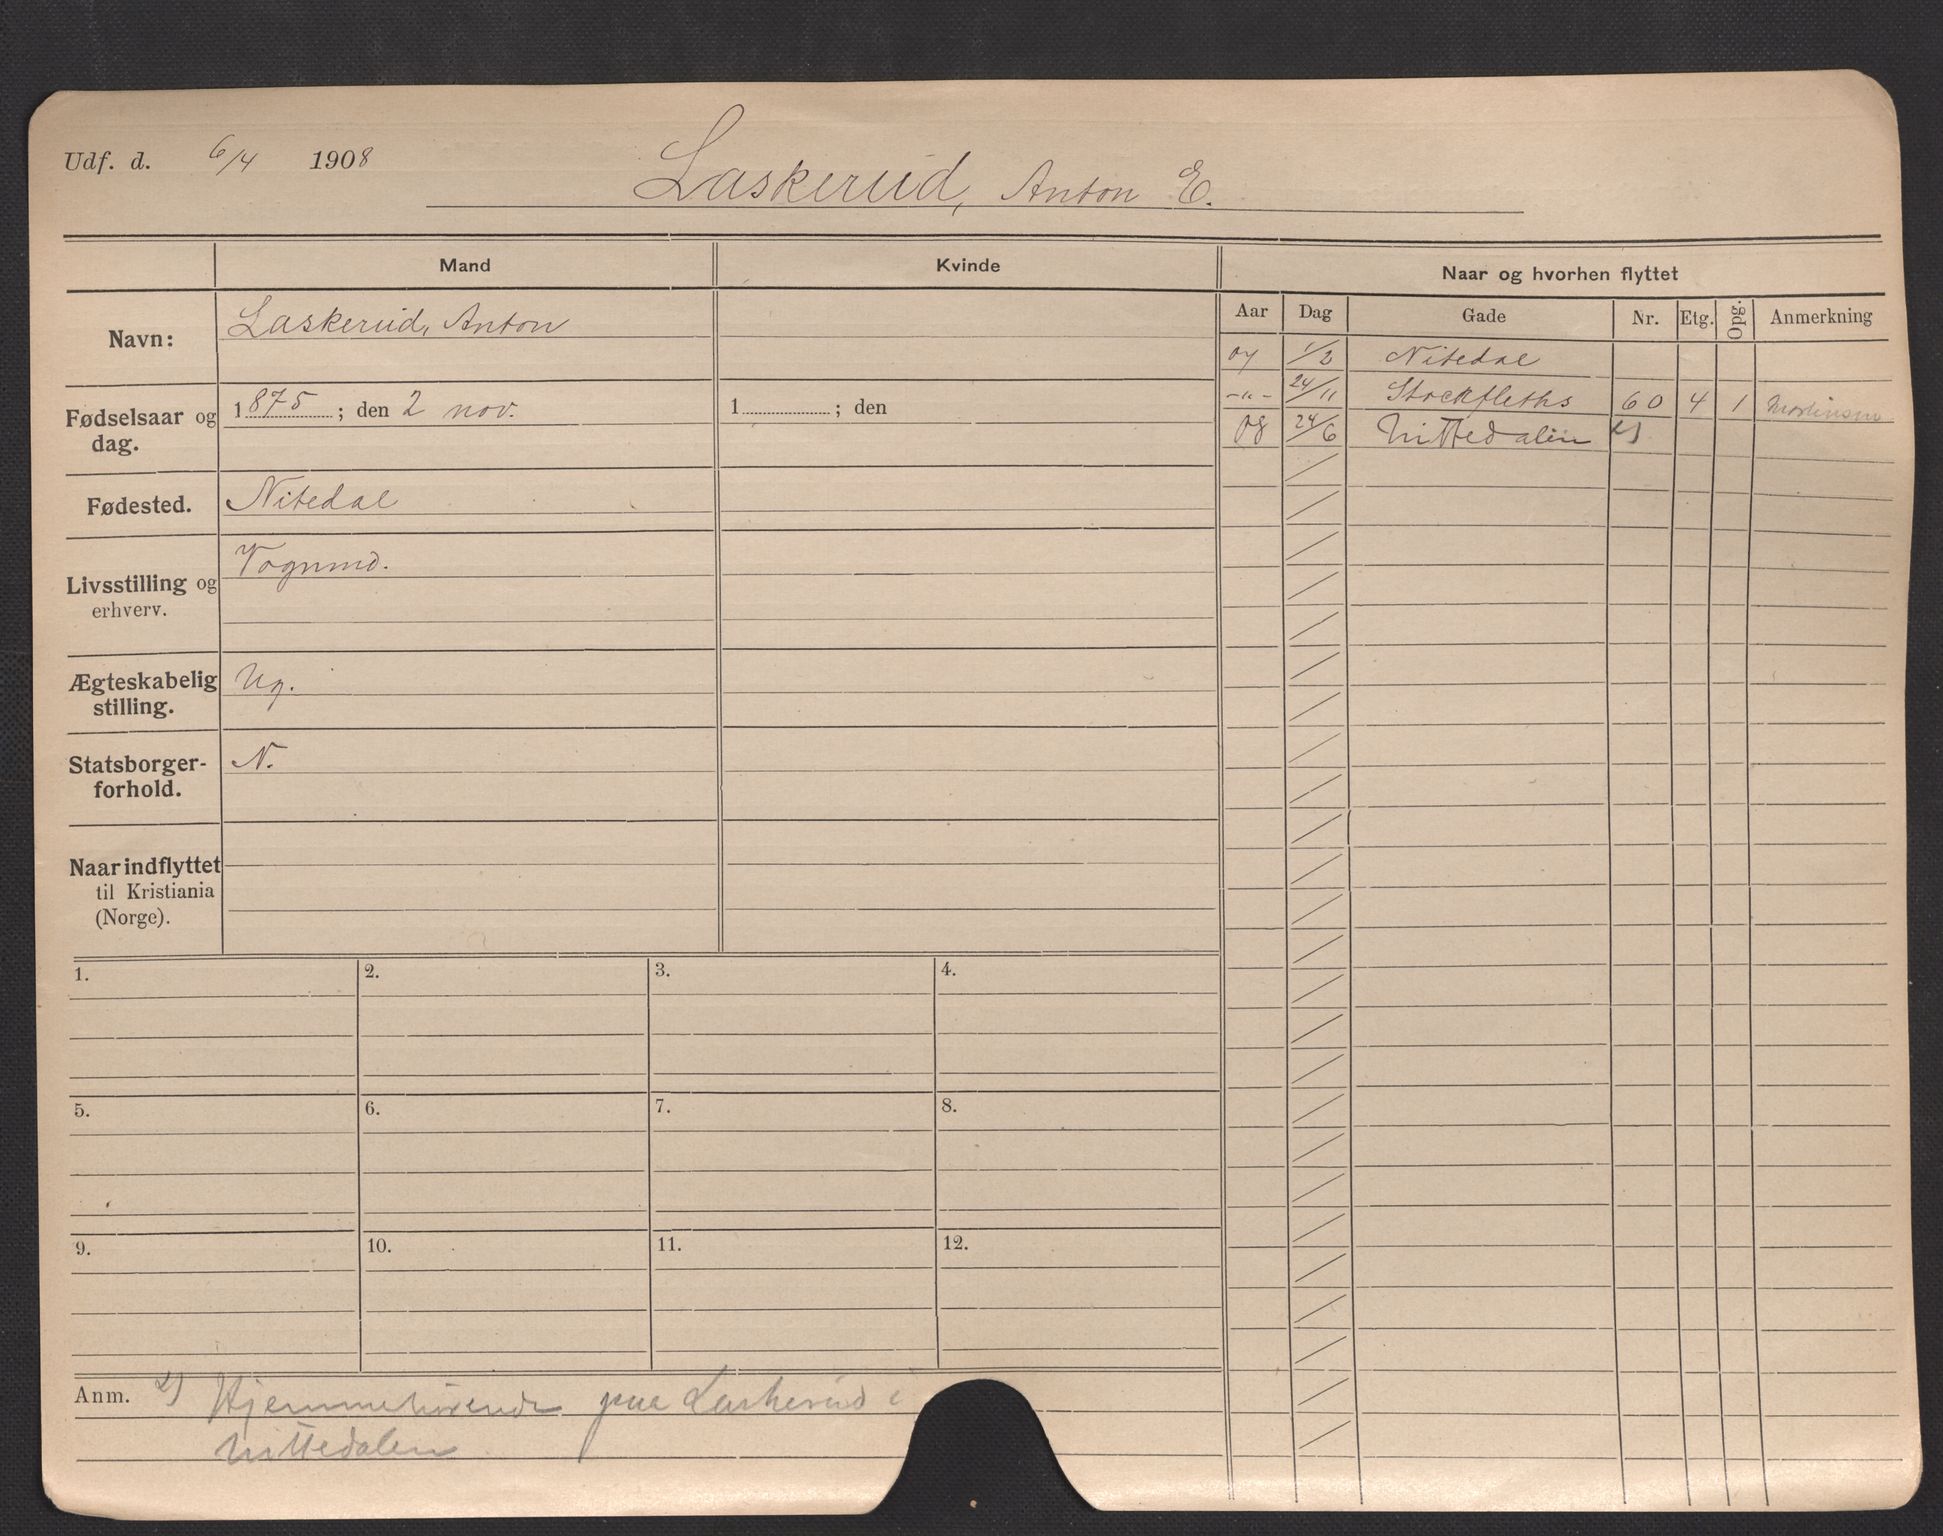 Udf. d. 6/4 1908
Laskerud, Anton E.
Mand Kvinde Naar og hvorhen flyttet
Aar Dag Gade Nr. Etg. Opg. Anmerkning
Navn: Laskerud, Anton
07 1/2 Nitedal
-"- 24/11 Stockfleths 60 4 1 Martinsen
08 24/6 Nittedalen 1)
Fødselsaar og dag. 1875; den 2 nov. 1 ; den
Fødested. Nitedal
Livsstilling og erhverv. Vognmd.
Ægteskabelig stilling. Ug.
Statsborger-
forhold. N.
Naar indflyttet
til Kristiania
(Norge).
1. 2. 3. 4.
5. 6. 7. 8.
9. 10. 11. 12.
Anm. 1) Hjemmehørende paa Laskerud i
Nittedalen